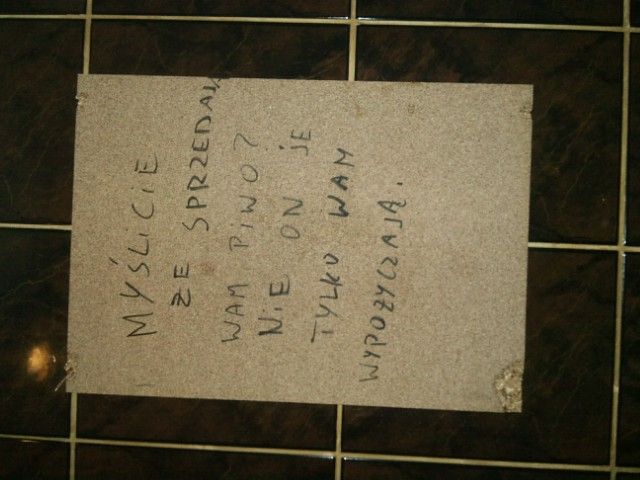 MYŚLICIE
ŻE SPRZEDAJĄ
WAM PIWO?
NIE ON JE
TYLKO WAM
WYPOZYCZAJĄ.